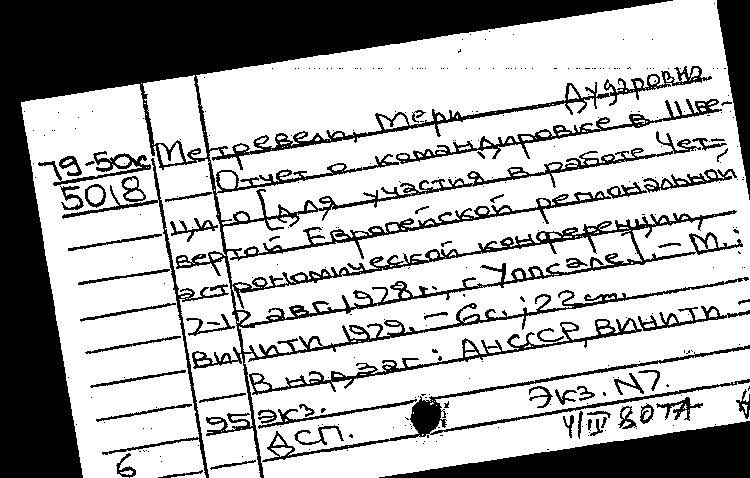 79-50к
5018
Метревели, Мери Дударовна
Отчет о командировке в Шве-
цию [для участия в работе Чет-
вертой Европейской региональной
астрономической конференции,
7-12 авг. 1978г., г. Уппсале]. - М.:
ВИНИТИ, 1979. - 6с.; 22см.
В надзаг: АНСССР, ВИНИТИ -
95 экз.
ДСП.
Экз. N7.
4/IV 80
6